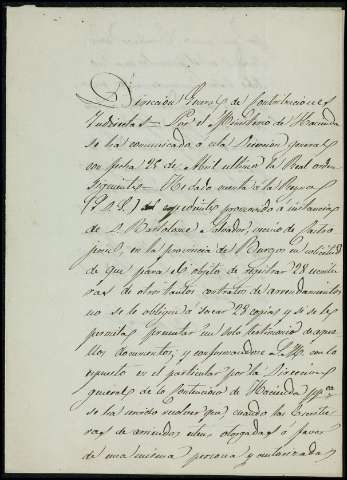 Direccion General de Contribuciones
Indirectas = Por el Ministerio de Hacienda
se ha comunicado a esta Direccion general
con fecha 25 de Abril ultimo la Real orden
siguiente = He dado cuenta a la Reyna
(Q. D. G.) del espediente promovido á instancia
de D. Bartolomé Salvador, vecino de Castro
jeriz, en la provincia de Burgos en solicitud
de que para el objeto de registrar 28 escritu
ras de otros tantos contratos de arrendamientos
no se le obligue á sacar 28 copias y se le
permita presentar un solo testimonio de aque
llos documentos; y conformandose S. M. con lo
espuesto en el particular por la Direccion
general de lo Contencioso de Hacienda ppca
se ha servido resolver que cuando las Escritu
ras de arriendos esten otorgadas á favor
de una misma persona y autorizadas